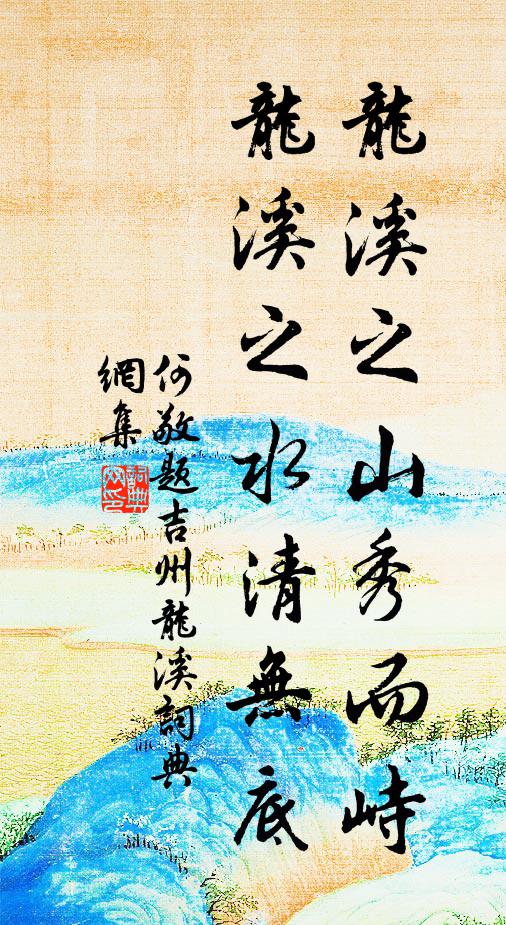 龍溪之山秀而峙
龍溪之水清無底
何敬題吉州龍溪詞典
網集